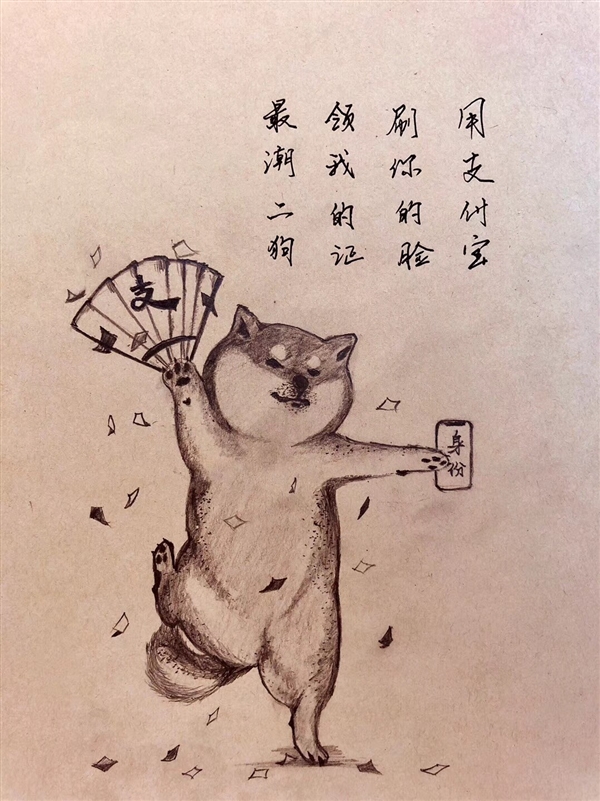 用支付宝
刷你的脸
领我的证
最潮二狗
支
身份